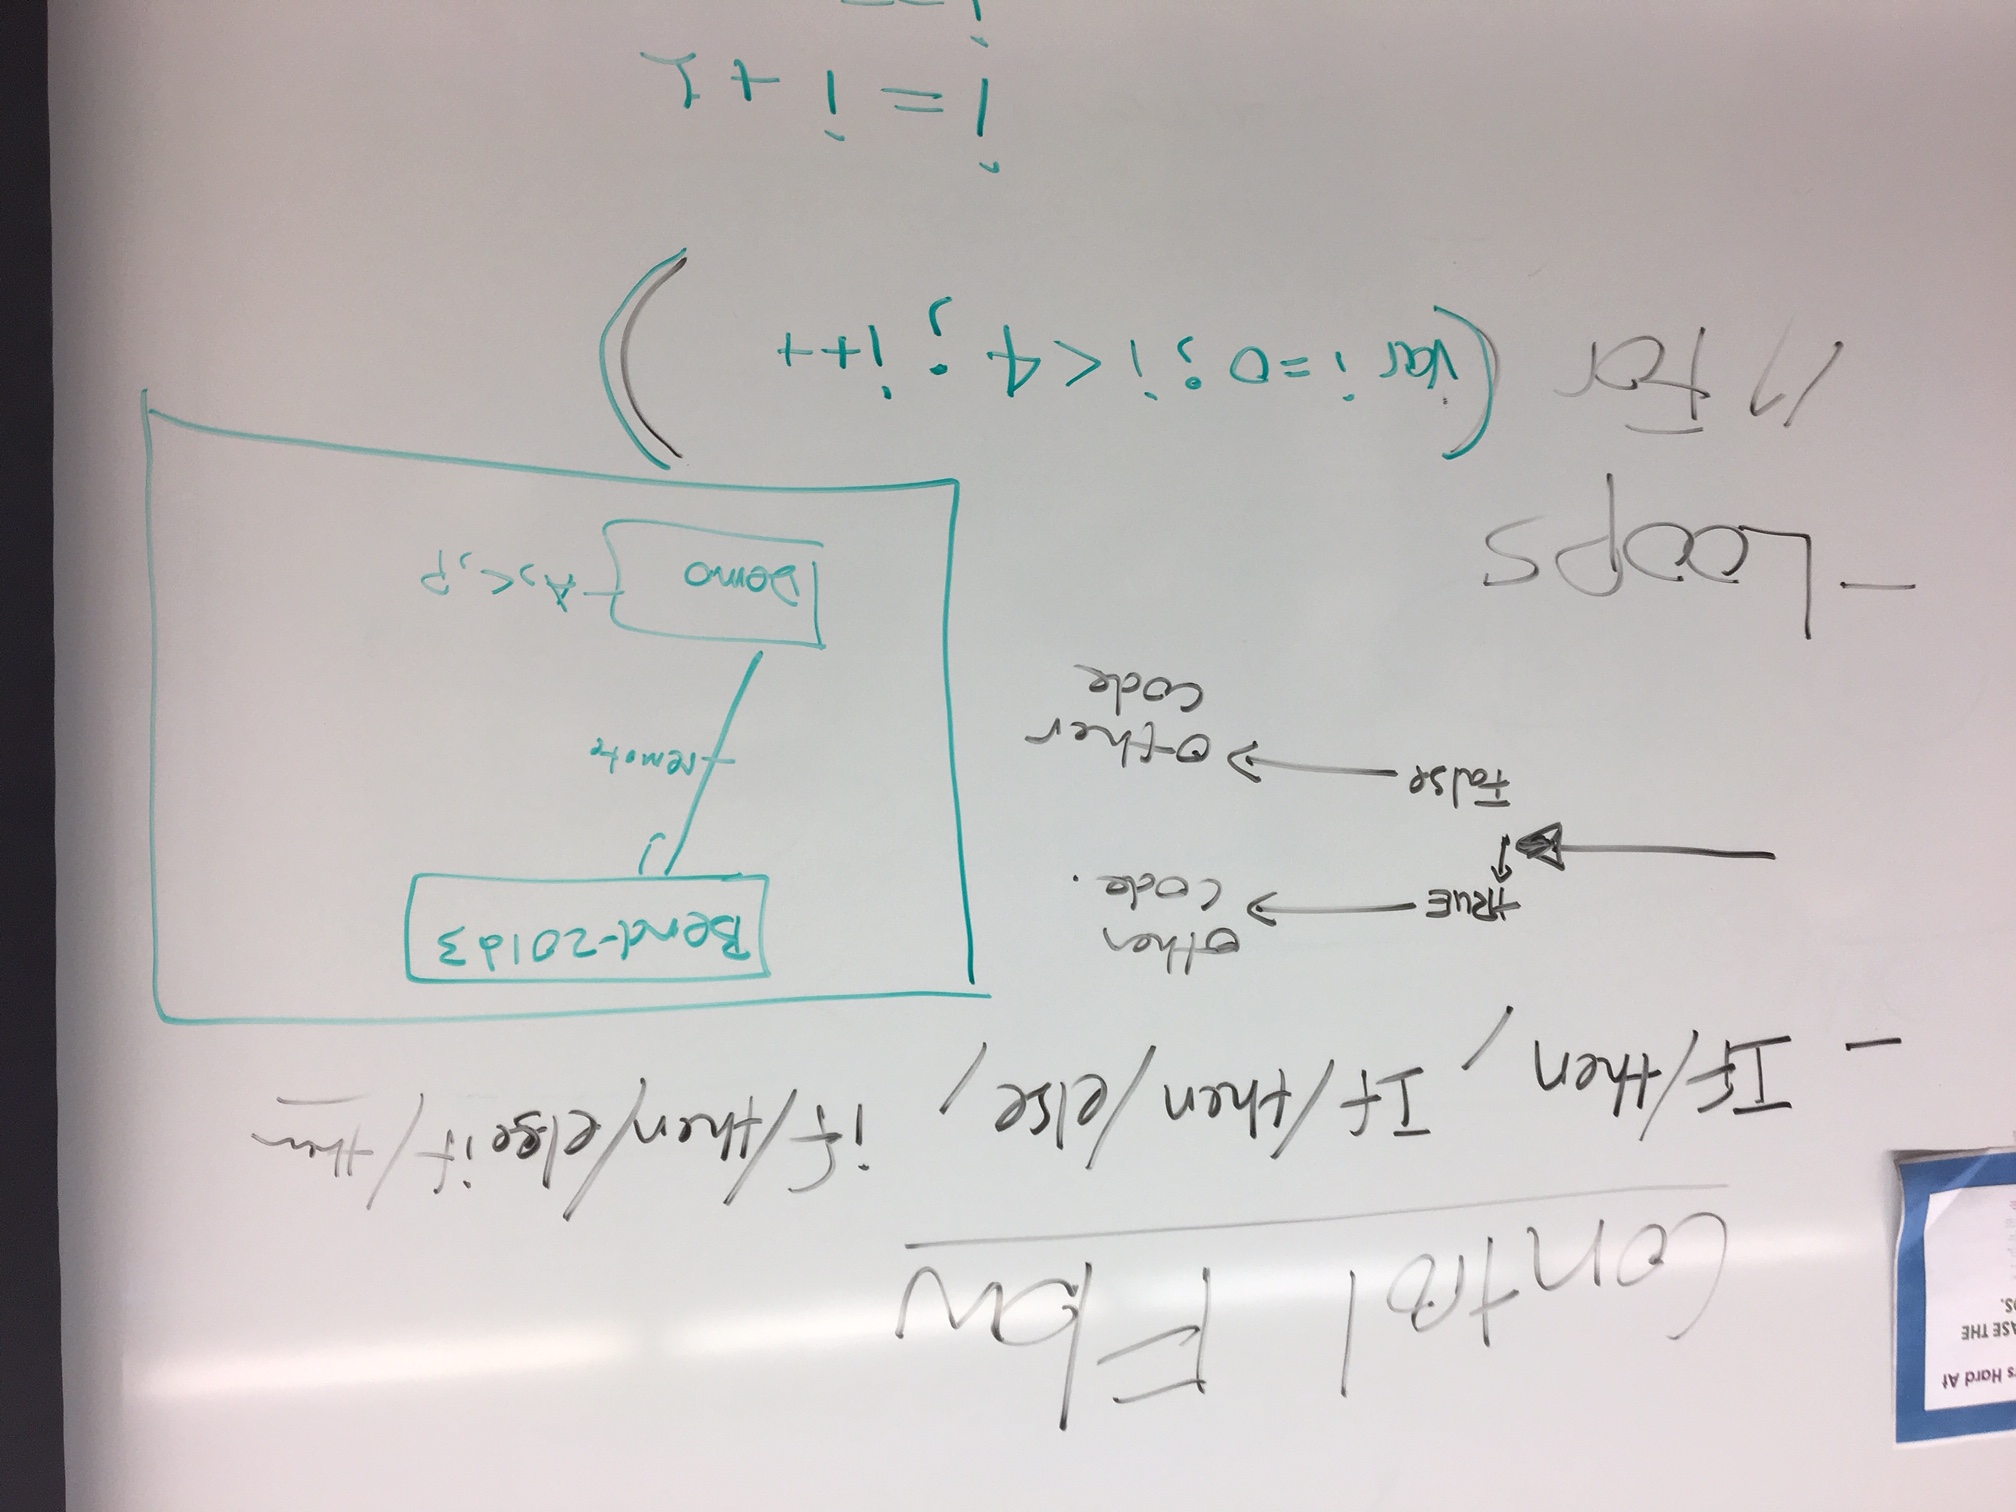 s Hard At
ASE THE
S.
Control Flow
- If/then, If/then/else, if/then/elseif/then
tRUE → other code.
False → other code
Bend-201d3
remote
Demo
A, C, P
- Loops
For (var i=0; i<4; i++)
i = i + 1